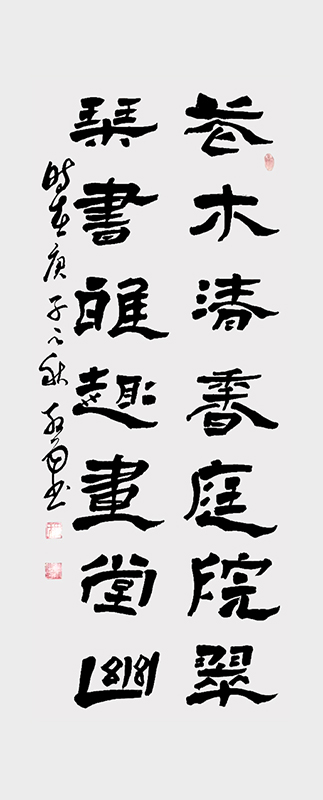 花木清香庭院翠
琹書雅趣畫堂幽
時在庚子之秋